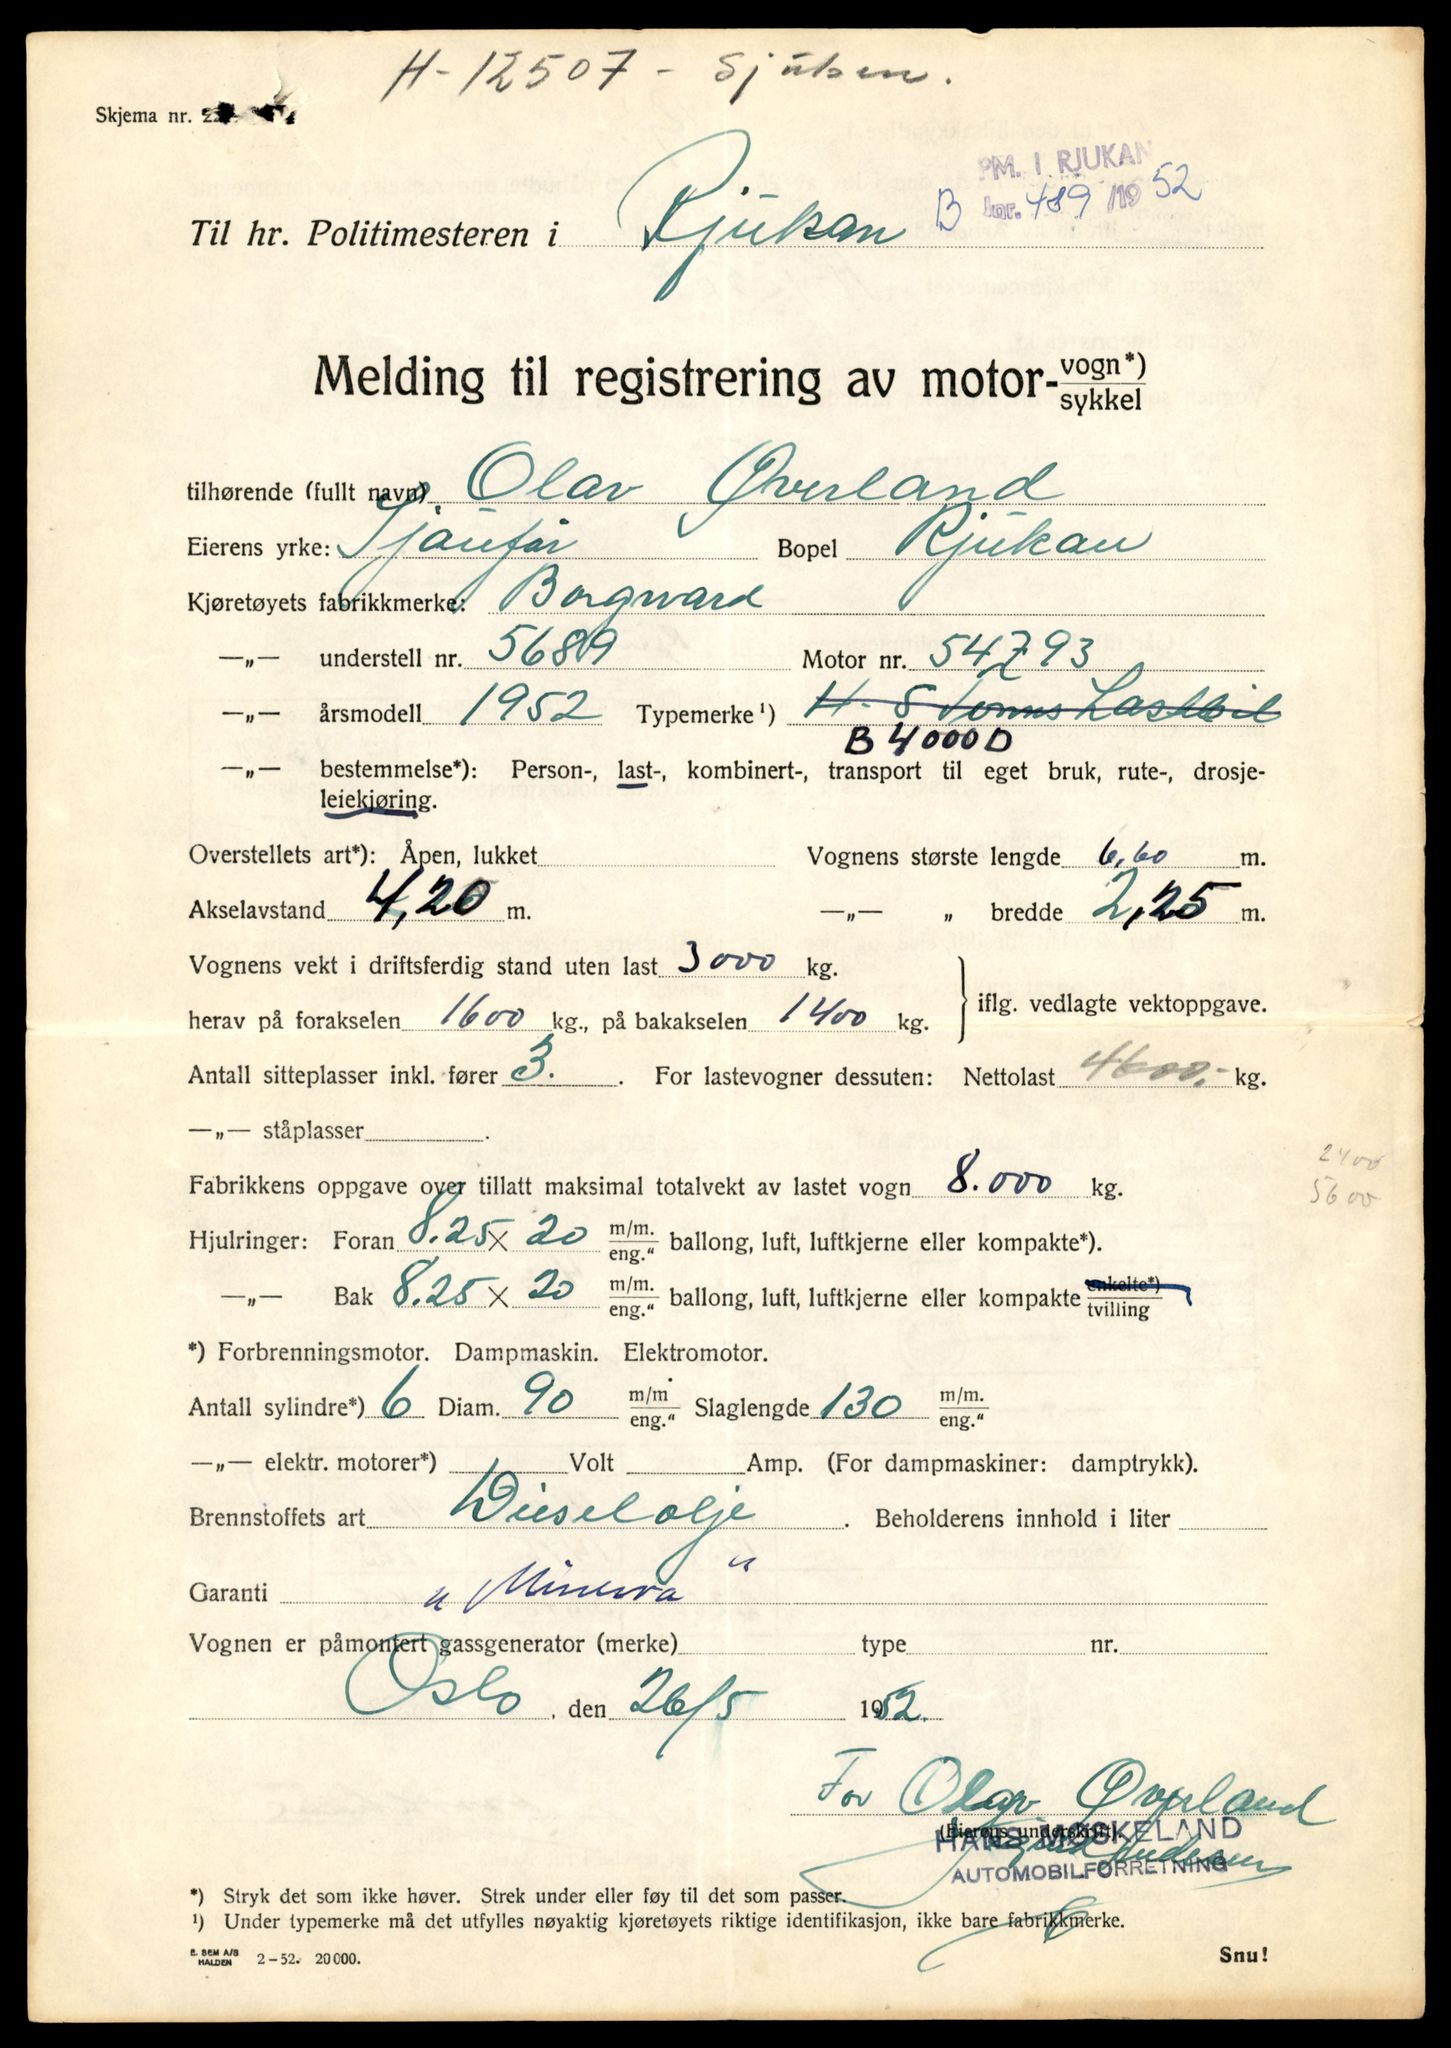 H-12507 - Sjuken.
Skjema nr.
PM. I RJUKAN
B Jnr. 489 /19 52
Til hr. Politimesteren i Rjukan
Melding til registrering av motor- vogn*) / sykkel
tilhørende (fullt navn) Olav Øverland
Eierens yrke: Sjåufør Bopel Rjukan
Kjøretøyets fabrikkmerke: Borgward
—„— understell nr. 5689 Motor nr. 54793
—„— årsmodell 1952 Typemerke¹) H- 5 Tonns Lastebil
B 4000D
—„— bestemmelse*): Person-, last-, kombinert-, transport til eget bruk, rute-, drosje-
leiekjøring.
Overstellets art*): Åpen, lukket Vognens største lengde 6,60 m.
Akselavstand 4,20 m. —„— „ bredde 2,25 m.
Vognens vekt i driftsferdig stand uten last 3000 kg.
herav på forakselen 1600 kg., på bakakselen 1400 kg. iflg. vedlagte vektoppgave.
Antall sitteplasser inkl. fører 3. . For lastevogner dessuten: Nettolast 4600,- kg.
—„— ståplasser .
2400
Fabrikkens oppgave over tillatt maksimal totalvekt av lastet vogn 8.000 kg.
5600
Hjulringer: Foran 8.25 x 20 m/m. / eng." ballong, luft, luftkjerne eller kompakte*).
—„— Bak 8.25 x 20 m/m. / eng." ballong, luft, luftkjerne eller kompakte enkelte*) / tvilling
*) Forbrenningsmotor. Dampmaskin. Elektromotor.
Antall sylindre*) 6 Diam. 90 m/m / eng." Slaglengde 130 m/m. / eng."
—„— elektr. motorer*) Volt Amp. (For dampmaskiner: damptrykk).
Brennstoffets art Dieselolje . Beholderens innhold i liter
Garanti „Minerva"
Vognen er påmontert gassgenerator (merke) type nr.
Oslo , den 26/5 1952.
For Olav Øverland
(Eierens underskrift).
HANS MOSKELAND
AUTOMOBILFORRETNING
*) Stryk det som ikke høver. Strek under eller føy til det som passer.
¹) Under typemerke må det utfylles nøyaktig kjøretøyets riktige identifikasjon, ikke bare fabrikkmerke.
E. SEM A/S
HALDEN 2-52. 20000.
Snu!